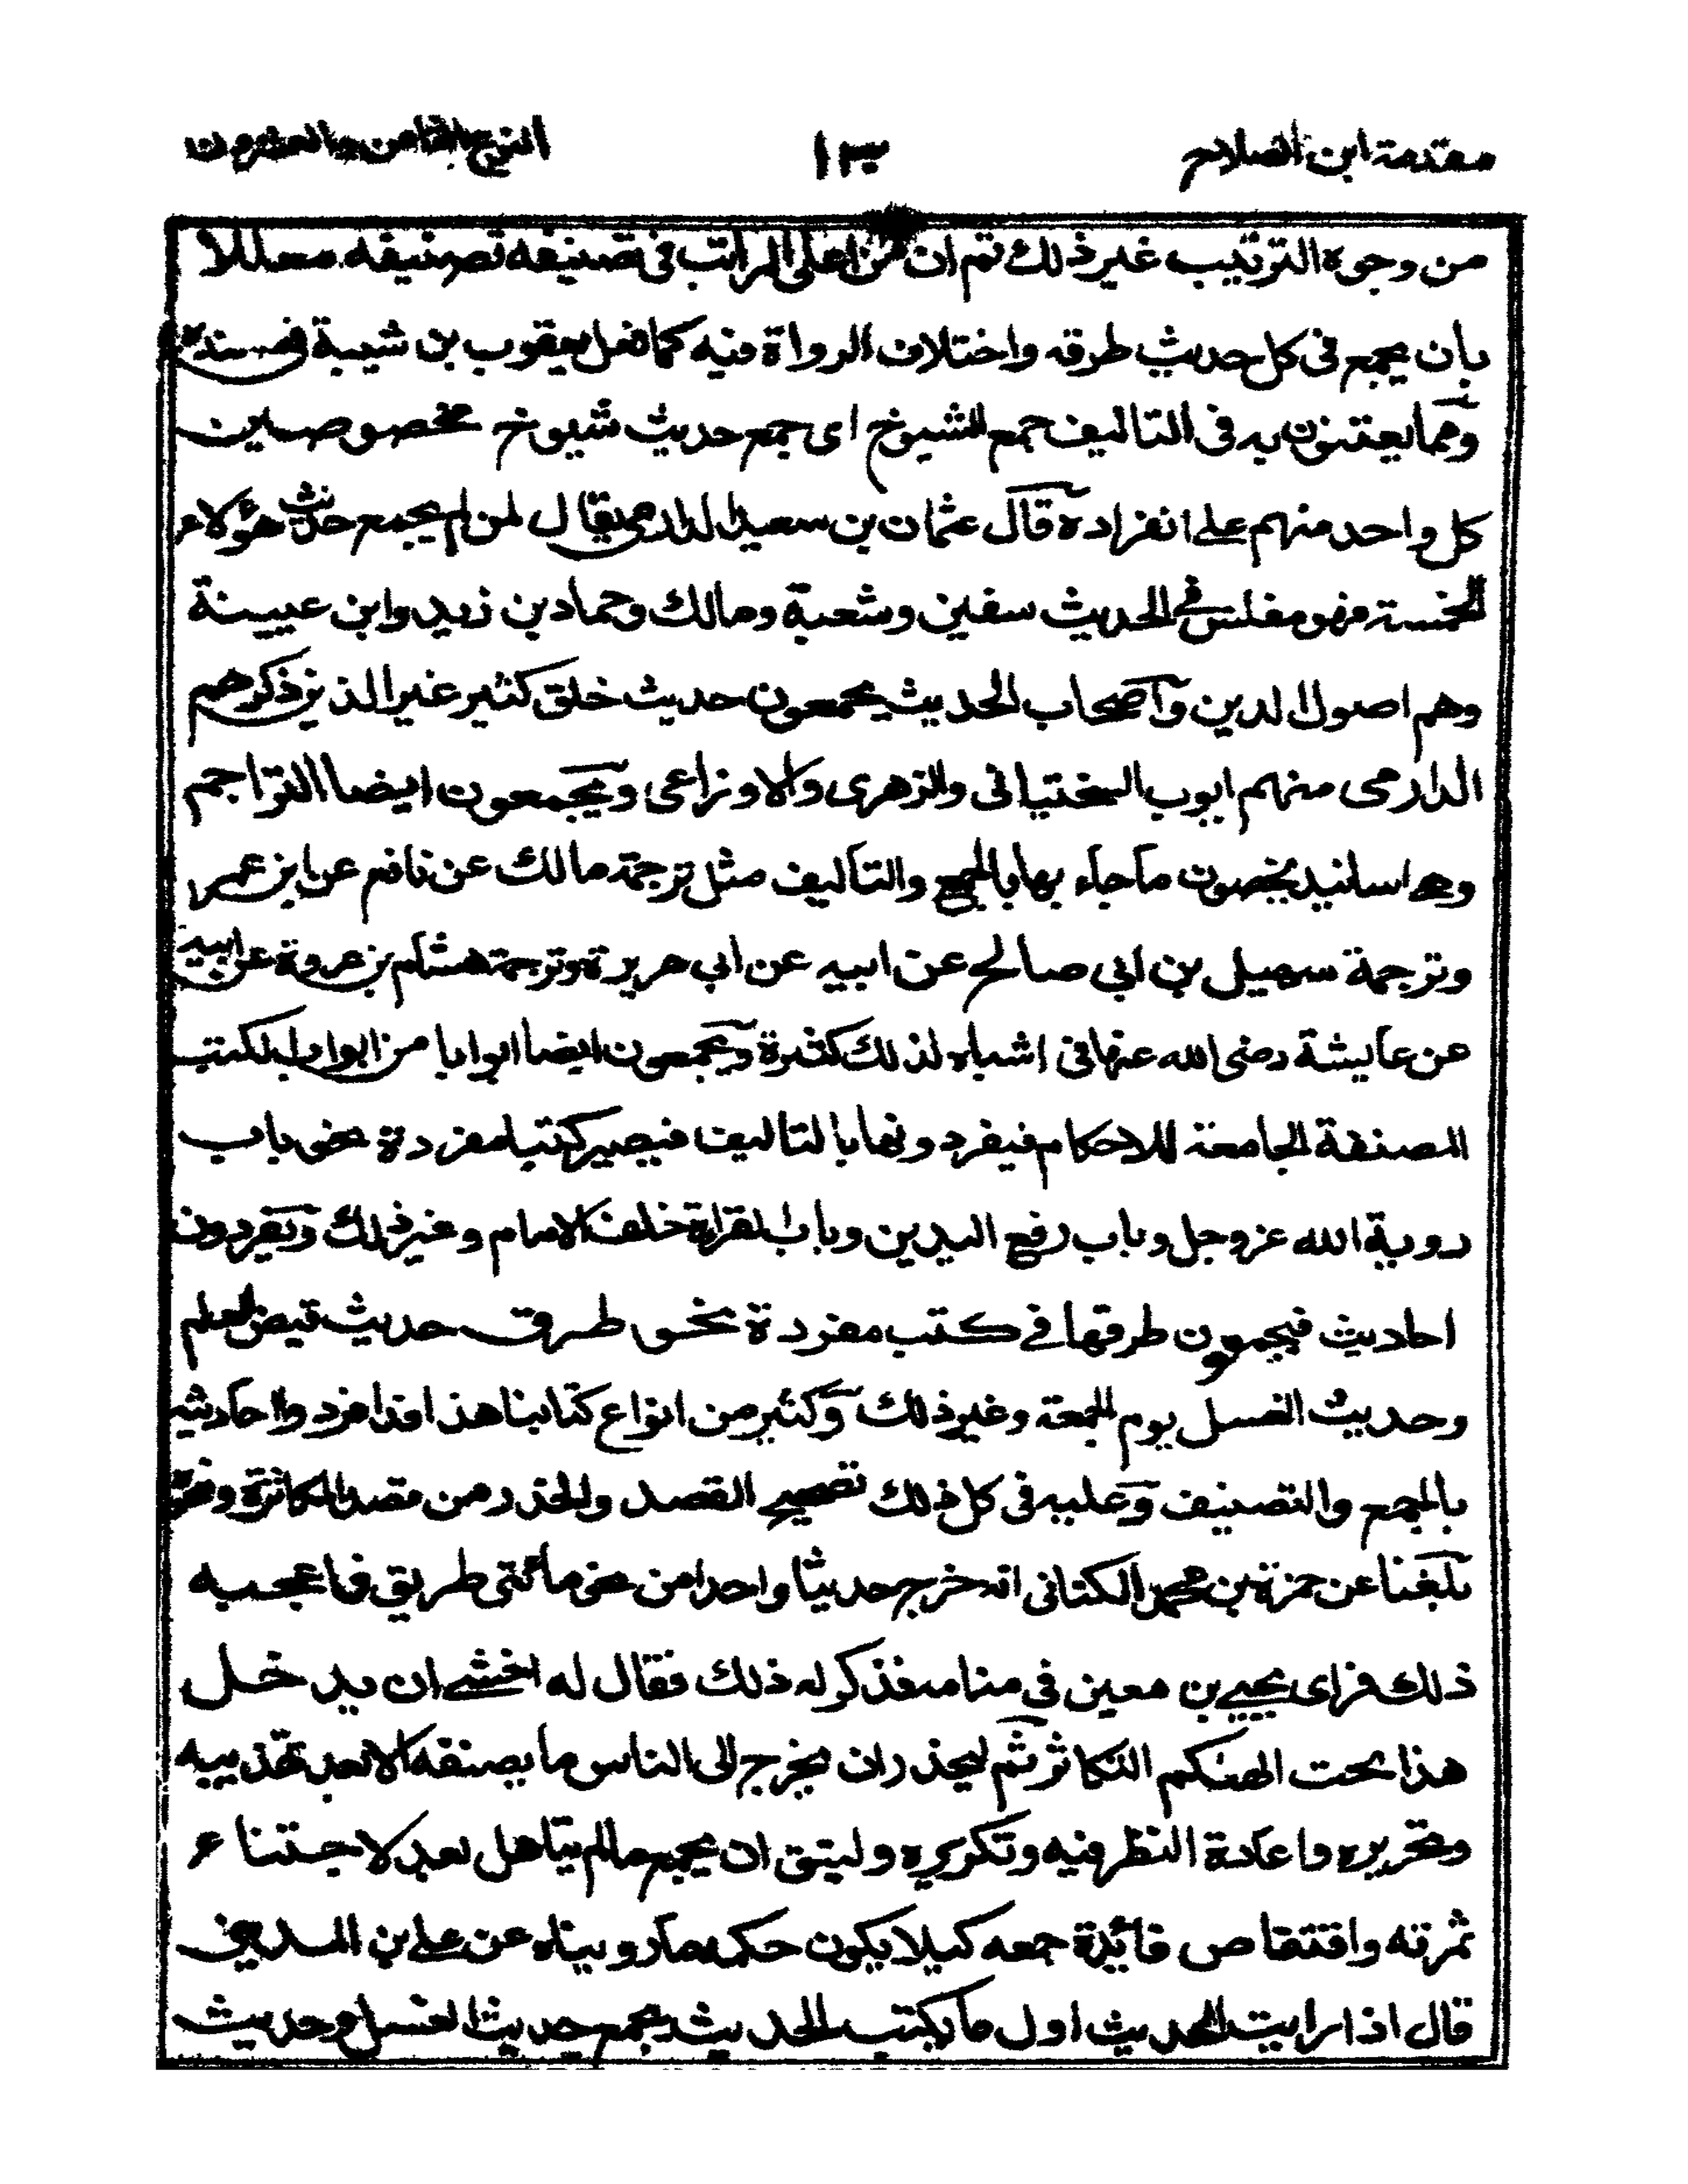 مقدمة ابن الصلاح ١٣٠ النوع الثامن والعشرون
من وجوه الترتيب غير ذلك ثم ان من اعلى المراتب فى تصنيفه تصنيفه معللا
بان يجمع فى كل حديث طرقه واختلاف الرواة فيه كما فعل يعقوب بن شيبة فى مسنده
ومما يعتنون به فى التاليف جمع الشيوخ اى جمع حديث شيوخ مخصوصين
كل واحد منهم على انفراده قال عثمان بن سعيد الدارمى يقال لمن لم يجمع حديث هؤلاء
الخمسة فهو مفلس فى الحديث سفين وشعبة ومالك وحماد بن زيد وابن عيينة
وهم اصول الدين واصحاب الحديث يجمعون حديث خلق كثير غير الذين ذكرهم
الدارمى منهم ايوب السختيانى والزهرى والاوزاعى ويجمعون ايضا التراجم
وهى اسانيد يخصون ما جاء بها بالجمع والتاليف مثل ترجمة مالك عن نافع عن ابن عمر
وترجمة سهيل بن ابى صالح عن ابيه عن ابى هريرة وترجمة هشام بن عروة عن ابيه
عن عايشة رضى الله عنها فى اشباه لذلك كثيرة ويجمعون ايضا ابوابا من ابواب الكتب
المصنفة الجامعة للاحكام فيفردونها بالتاليف فيصير كتبا مفردة نحو باب
روية الله عز وجل وباب رفع اليدين وباب القراءة خلف الامام وغير ذلك ويفردون
احاديث فيجمعون طرقها فى كتب مفردة نحو طرق حديث قبض العلم
وحديث الغسل يوم الجمعة وغير ذلك وكثير من انواع كتابنا هذا قد افرد وا احاديثه
بالجمع والتصنيف وعليه فى كل ذلك تصحيح القصد والحذر من قصد المكاثرة ونحوه
بلغنا عن حمزة بن محمد الكنانى انه خرج حديثا واحدا من نحو مائتى طريق فاعجبه
ذلك فراى يحيى بن معين فى منامه فذكر له ذلك فقال له اخشى ان يدخل
هذا تحت الهىكم التكاثر ثم ليحذر ان يخرج الى الناس ما يصنفه الا بعد تهذيبه
وتحريره واعادة النظر فيه وتكريره وليتق ان يجمع ما لم يتاهل بعد لاجتناء
ثمرته واقتقاص فائدة جمعه كيلا يكون حكمه ما رويناه عن على بن المدينى
قال اذا رايت الحديث اول ما يكتب الحديث يجمع حديث الغسل وحديث